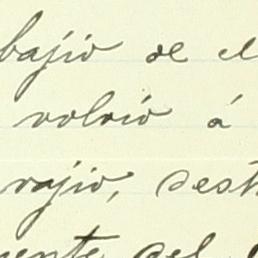 bajio de el
volvió á
vajio, dest
mente del